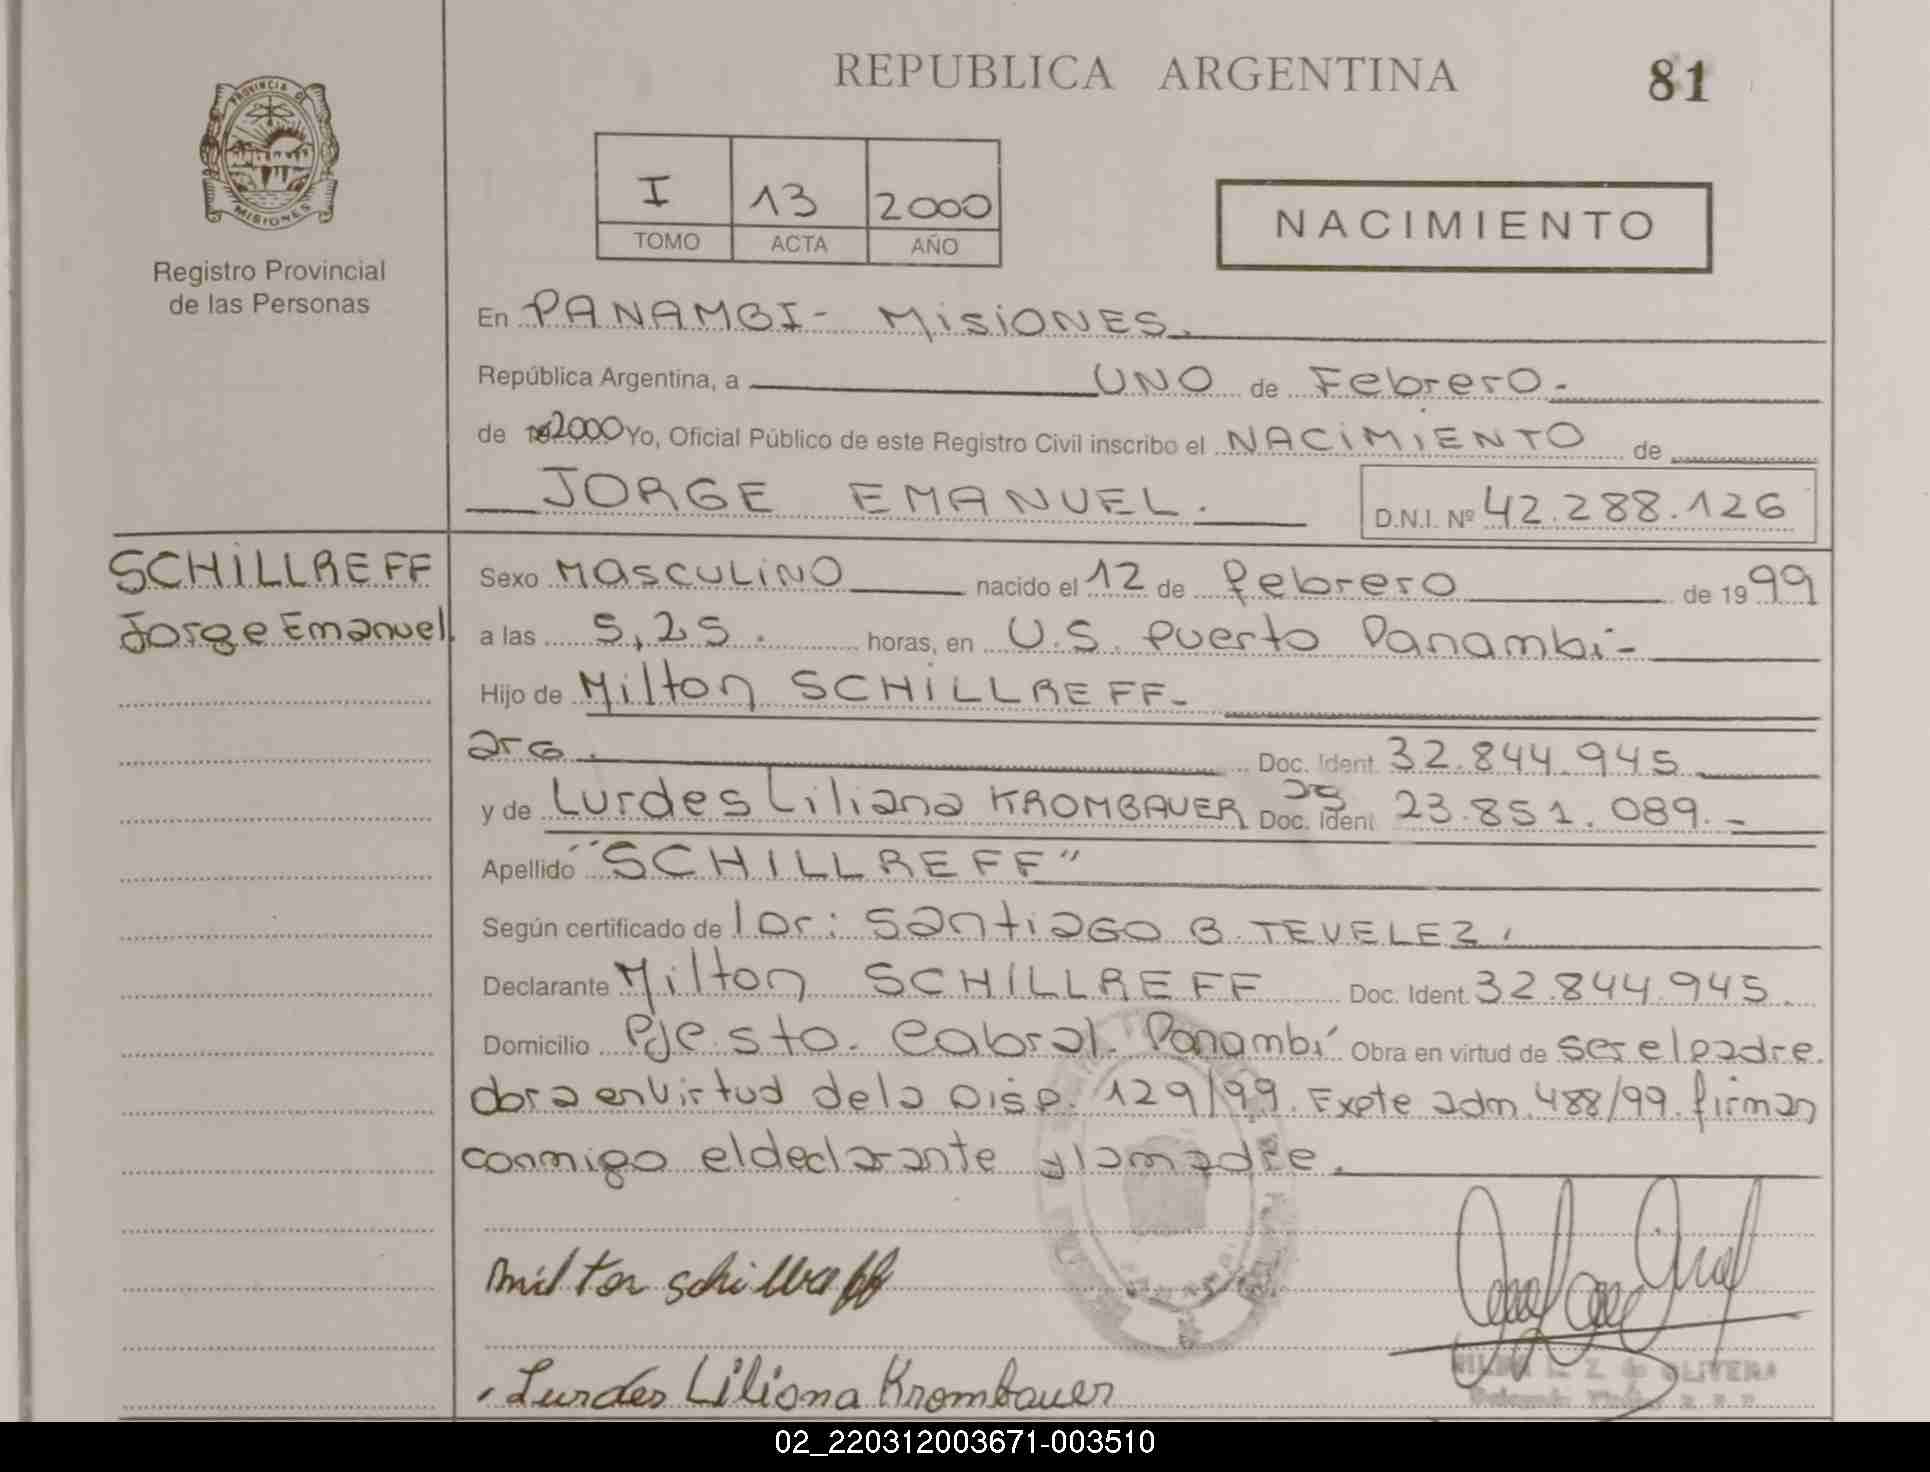 REPUBLICA ARGENTINA
81
PROVINCIA DE
MISIONES
Registro Provincial
de las Personas
I 13 2000
TOMO ACTA AÑO
NACIMIENTO
En PANAMBI- MisiONES.
República Argentina, a UNO de Febrero.-
de 2000 Yo, Oficial Público de este Registro Civil inscribo el NACiMiENTO de
JORGE EMANUEL.
D.N.I. Nº 42.288.126
SCHiLLREFF
Jorge Emanuel.
Sexo MASCULiNO nacido el 12 de febrero de 1999
a las 5,25. horas, en U.S. Puerto Panambi-
Hijo de Milton SCHiLLREFF-
arG. Doc. Ident. 32.844.945
y de Lurdes Liliana KROMBAUER Doc. Ident 23.851.089.-
Apellido "SCHILLREFF"
Según certificado de Santiago B. TEVELEZ.
Declarante Milton SCHILLREFF Doc. Ident. 32.844.945.
Domicilio Pje. sto. Cabral. Panambí Obra en virtud de ser el padre.
obra en virtud de la Disp. 129/99. Expte adm. 488/99. firman
conmigo el declarante y la madre.
Milton Schillreff
Lurdes Liliana Krombauer
OLIVERA
02_220312003671-003510